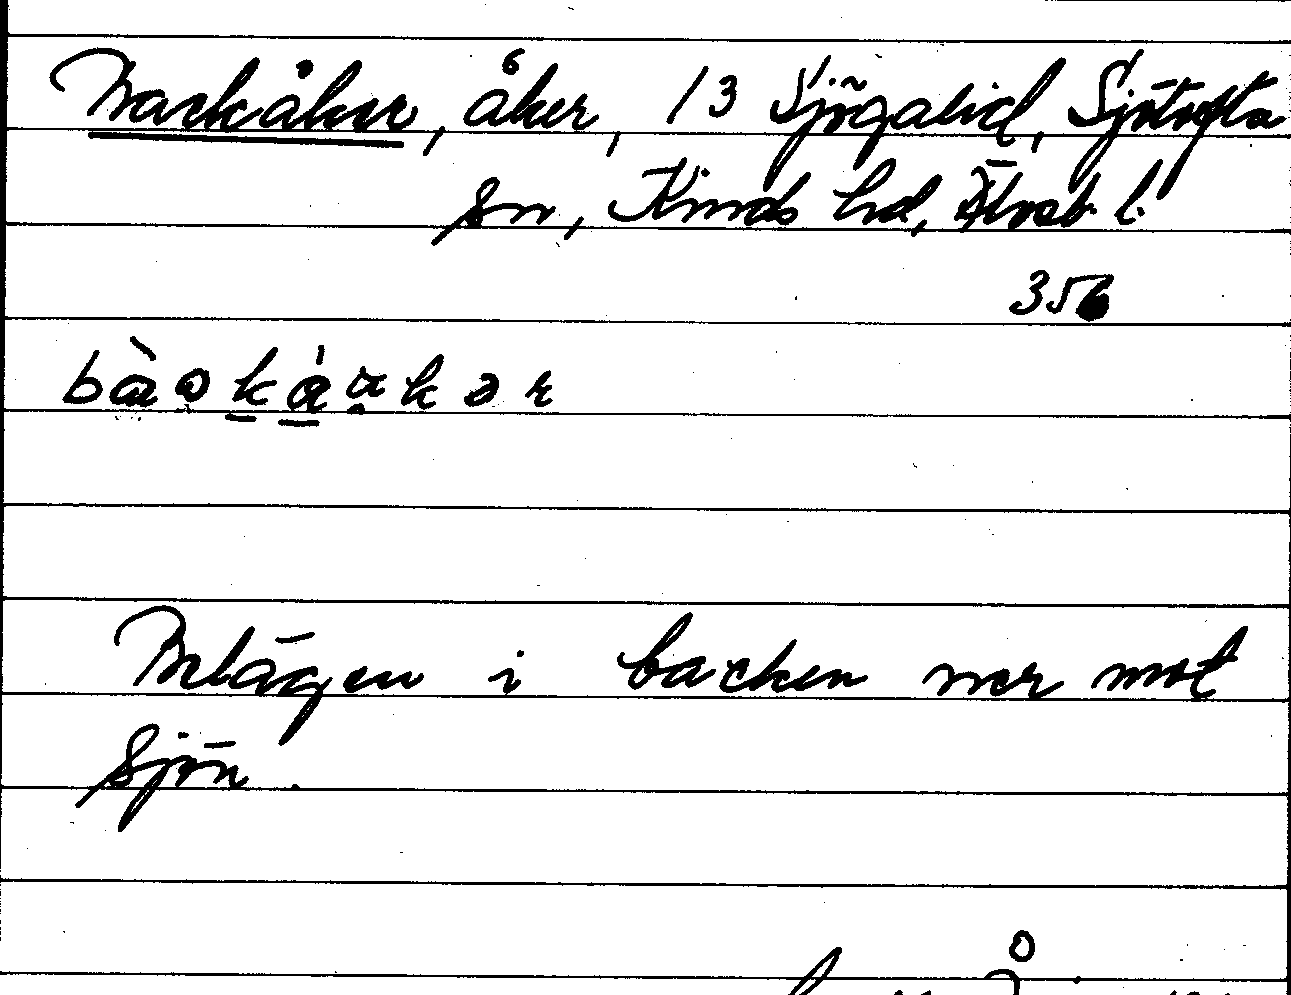 Backåker, åker, 13 Sjögalid, Sjötofta
sn, Kinds hd, Älvsb. l.
356
bàɑkáɑkər
Belägen i backen ner mot
sjön.